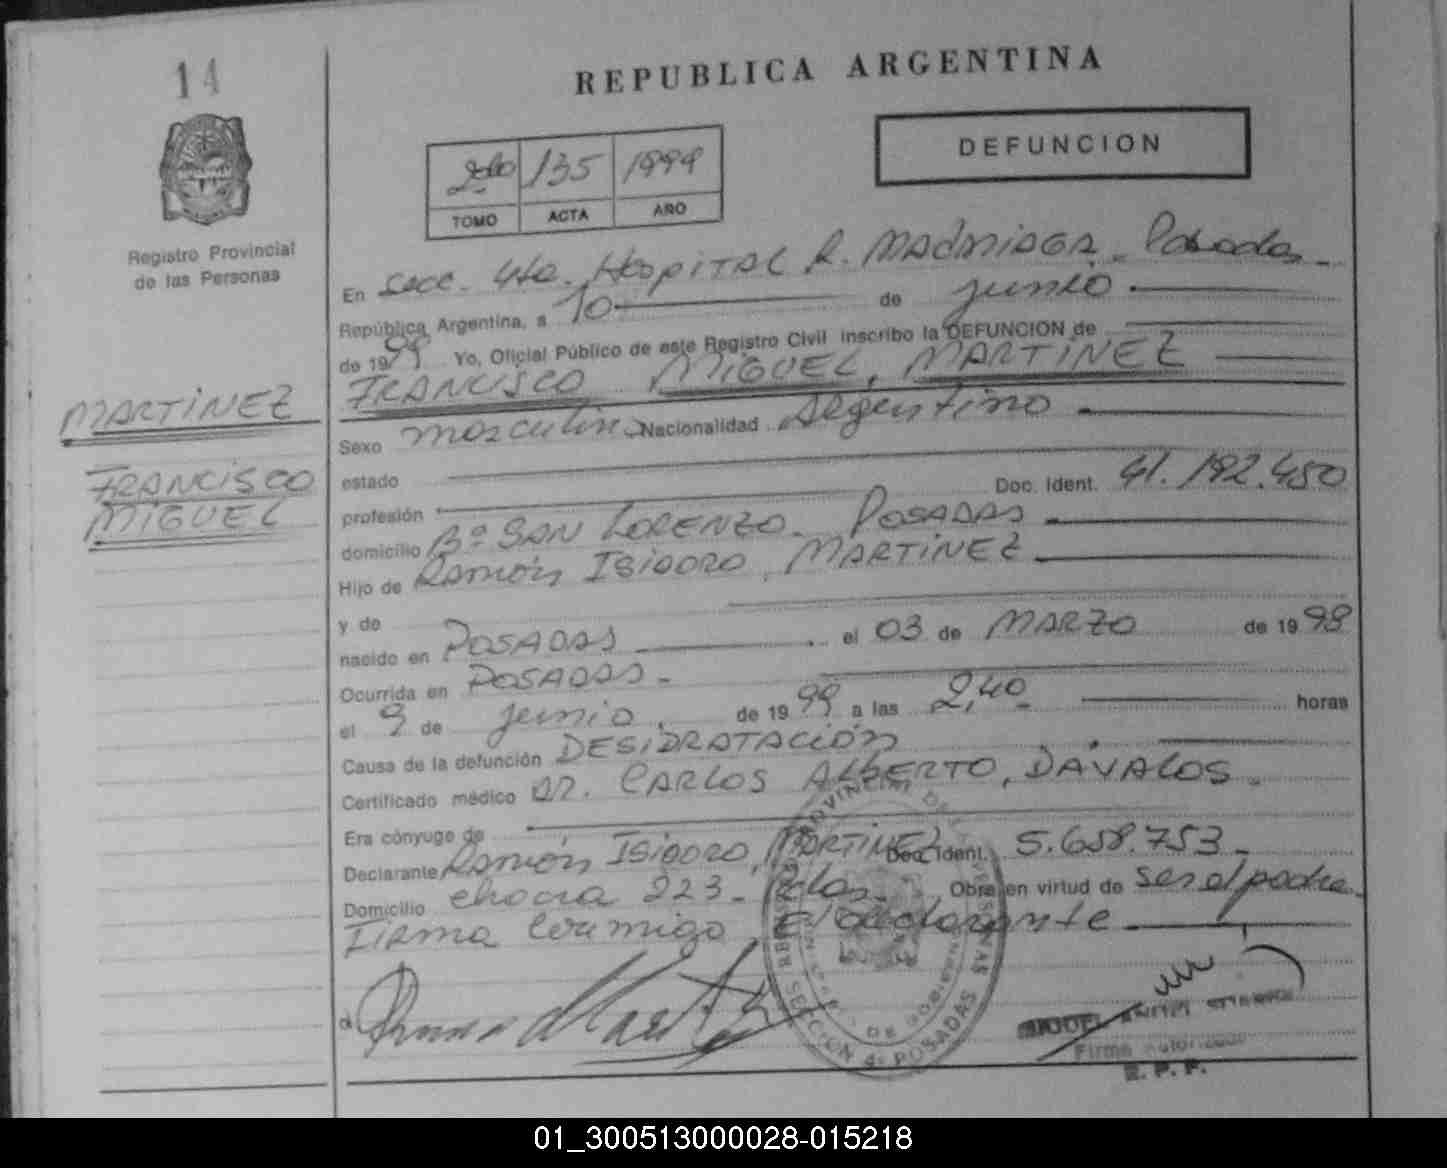 14
REPUBLICA ARGENTINA
DEFUNCION
2do 135 1999
TOMO ACTA AÑO
Registro Provincial
de las Personas
En Secc. 4ta. Hospital R. MADARIAGA. Posadas.
República Argentina, a 10 de junio
de 1999 Yo, Oficial Público de este Registro Civil inscribo la DEFUNCION de
FRANCISCO MIGUEL, MARTINEZ
MARTINEZ
FRANCISCO
MIGUEL
Sexo masculino Nacionalidad Argentino
estado
profesión Doc. Ident. 41.192.450
domicilio Bº SAN LORENZO. POSADAS
Hijo de Ramón ISIDORO, MARTINEZ
y de
nacido en POSADAS el 03 de MARZO de 1998
Ocurrida en POSADAS.
el 9 de junio, de 1999 a las 2,40 horas
Causa de la defunción DESIDRATACIÓN
Certificado médico DR. CARLOS ALBERTO, DÁVALOS.
Era cónyuge de
Declarante Ramón ISIDORO, MARTINEZ Doc. Ident. 5.658.753
Domicilio 223. Pdas. Obra en virtud de ser el padre
Firma conmigo, El declarante
SECCION 4a POSADAS
Firma Autorizada
R. P. P.
01_300513000028-015218